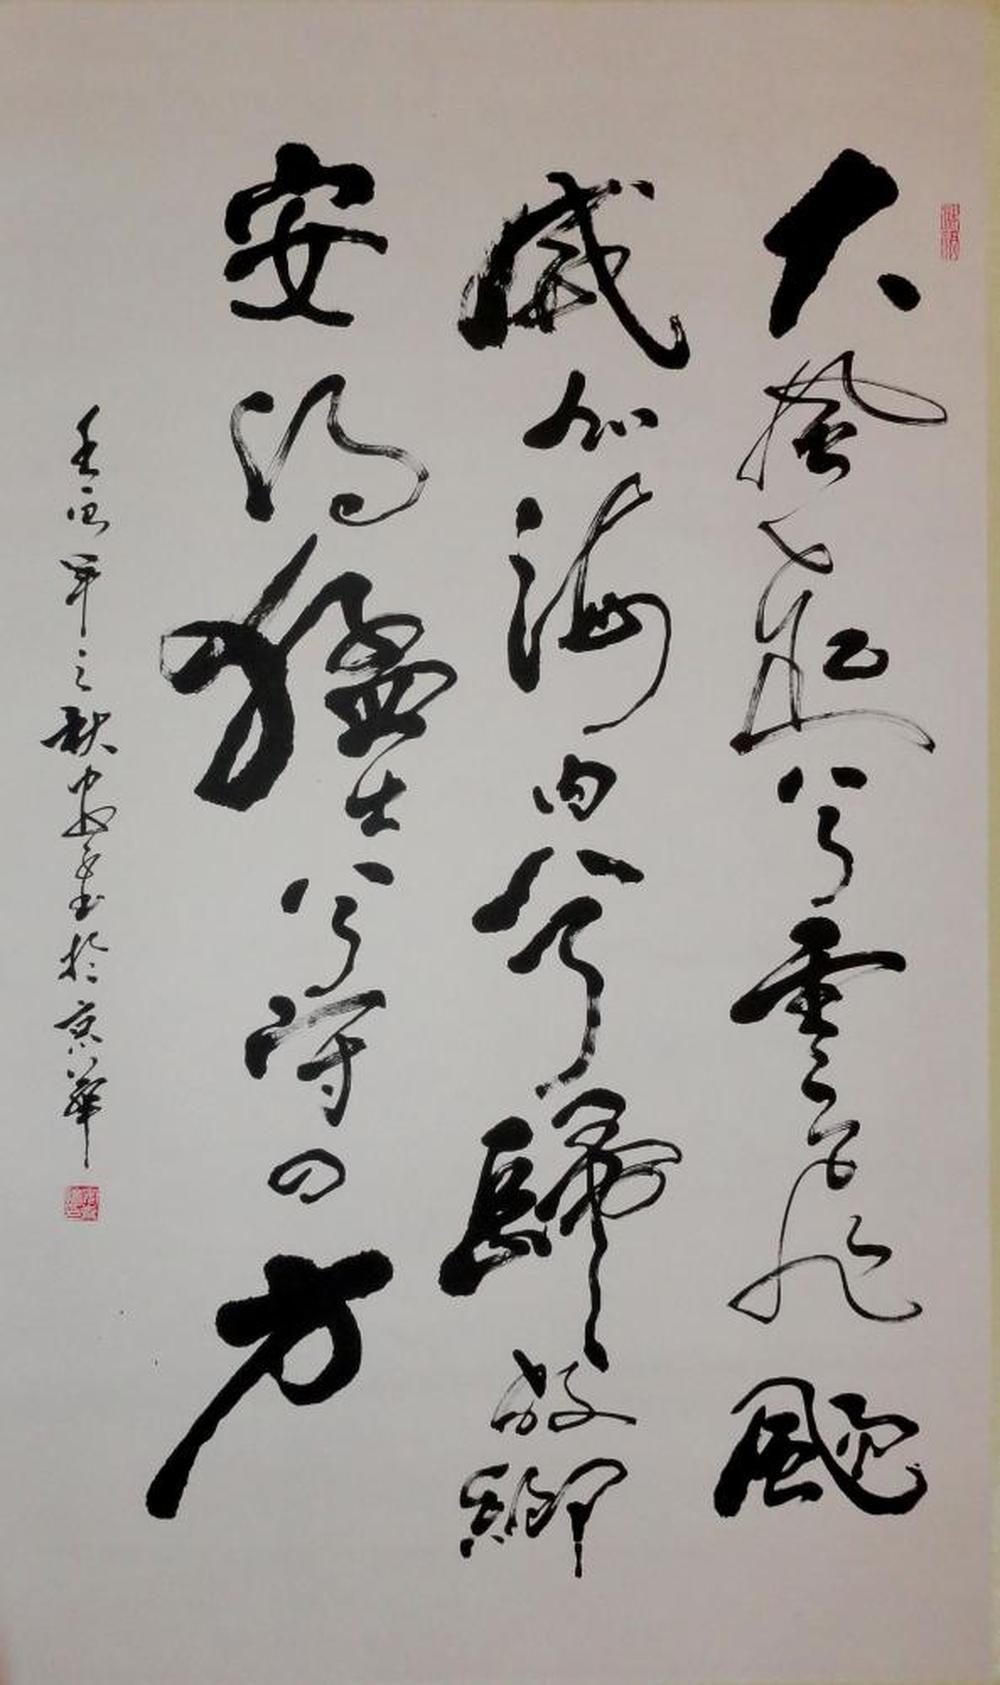 大風起兮雲飛颺
威加海內兮歸故鄉
安得猛士兮守四方
壬寅年之秋書於京華